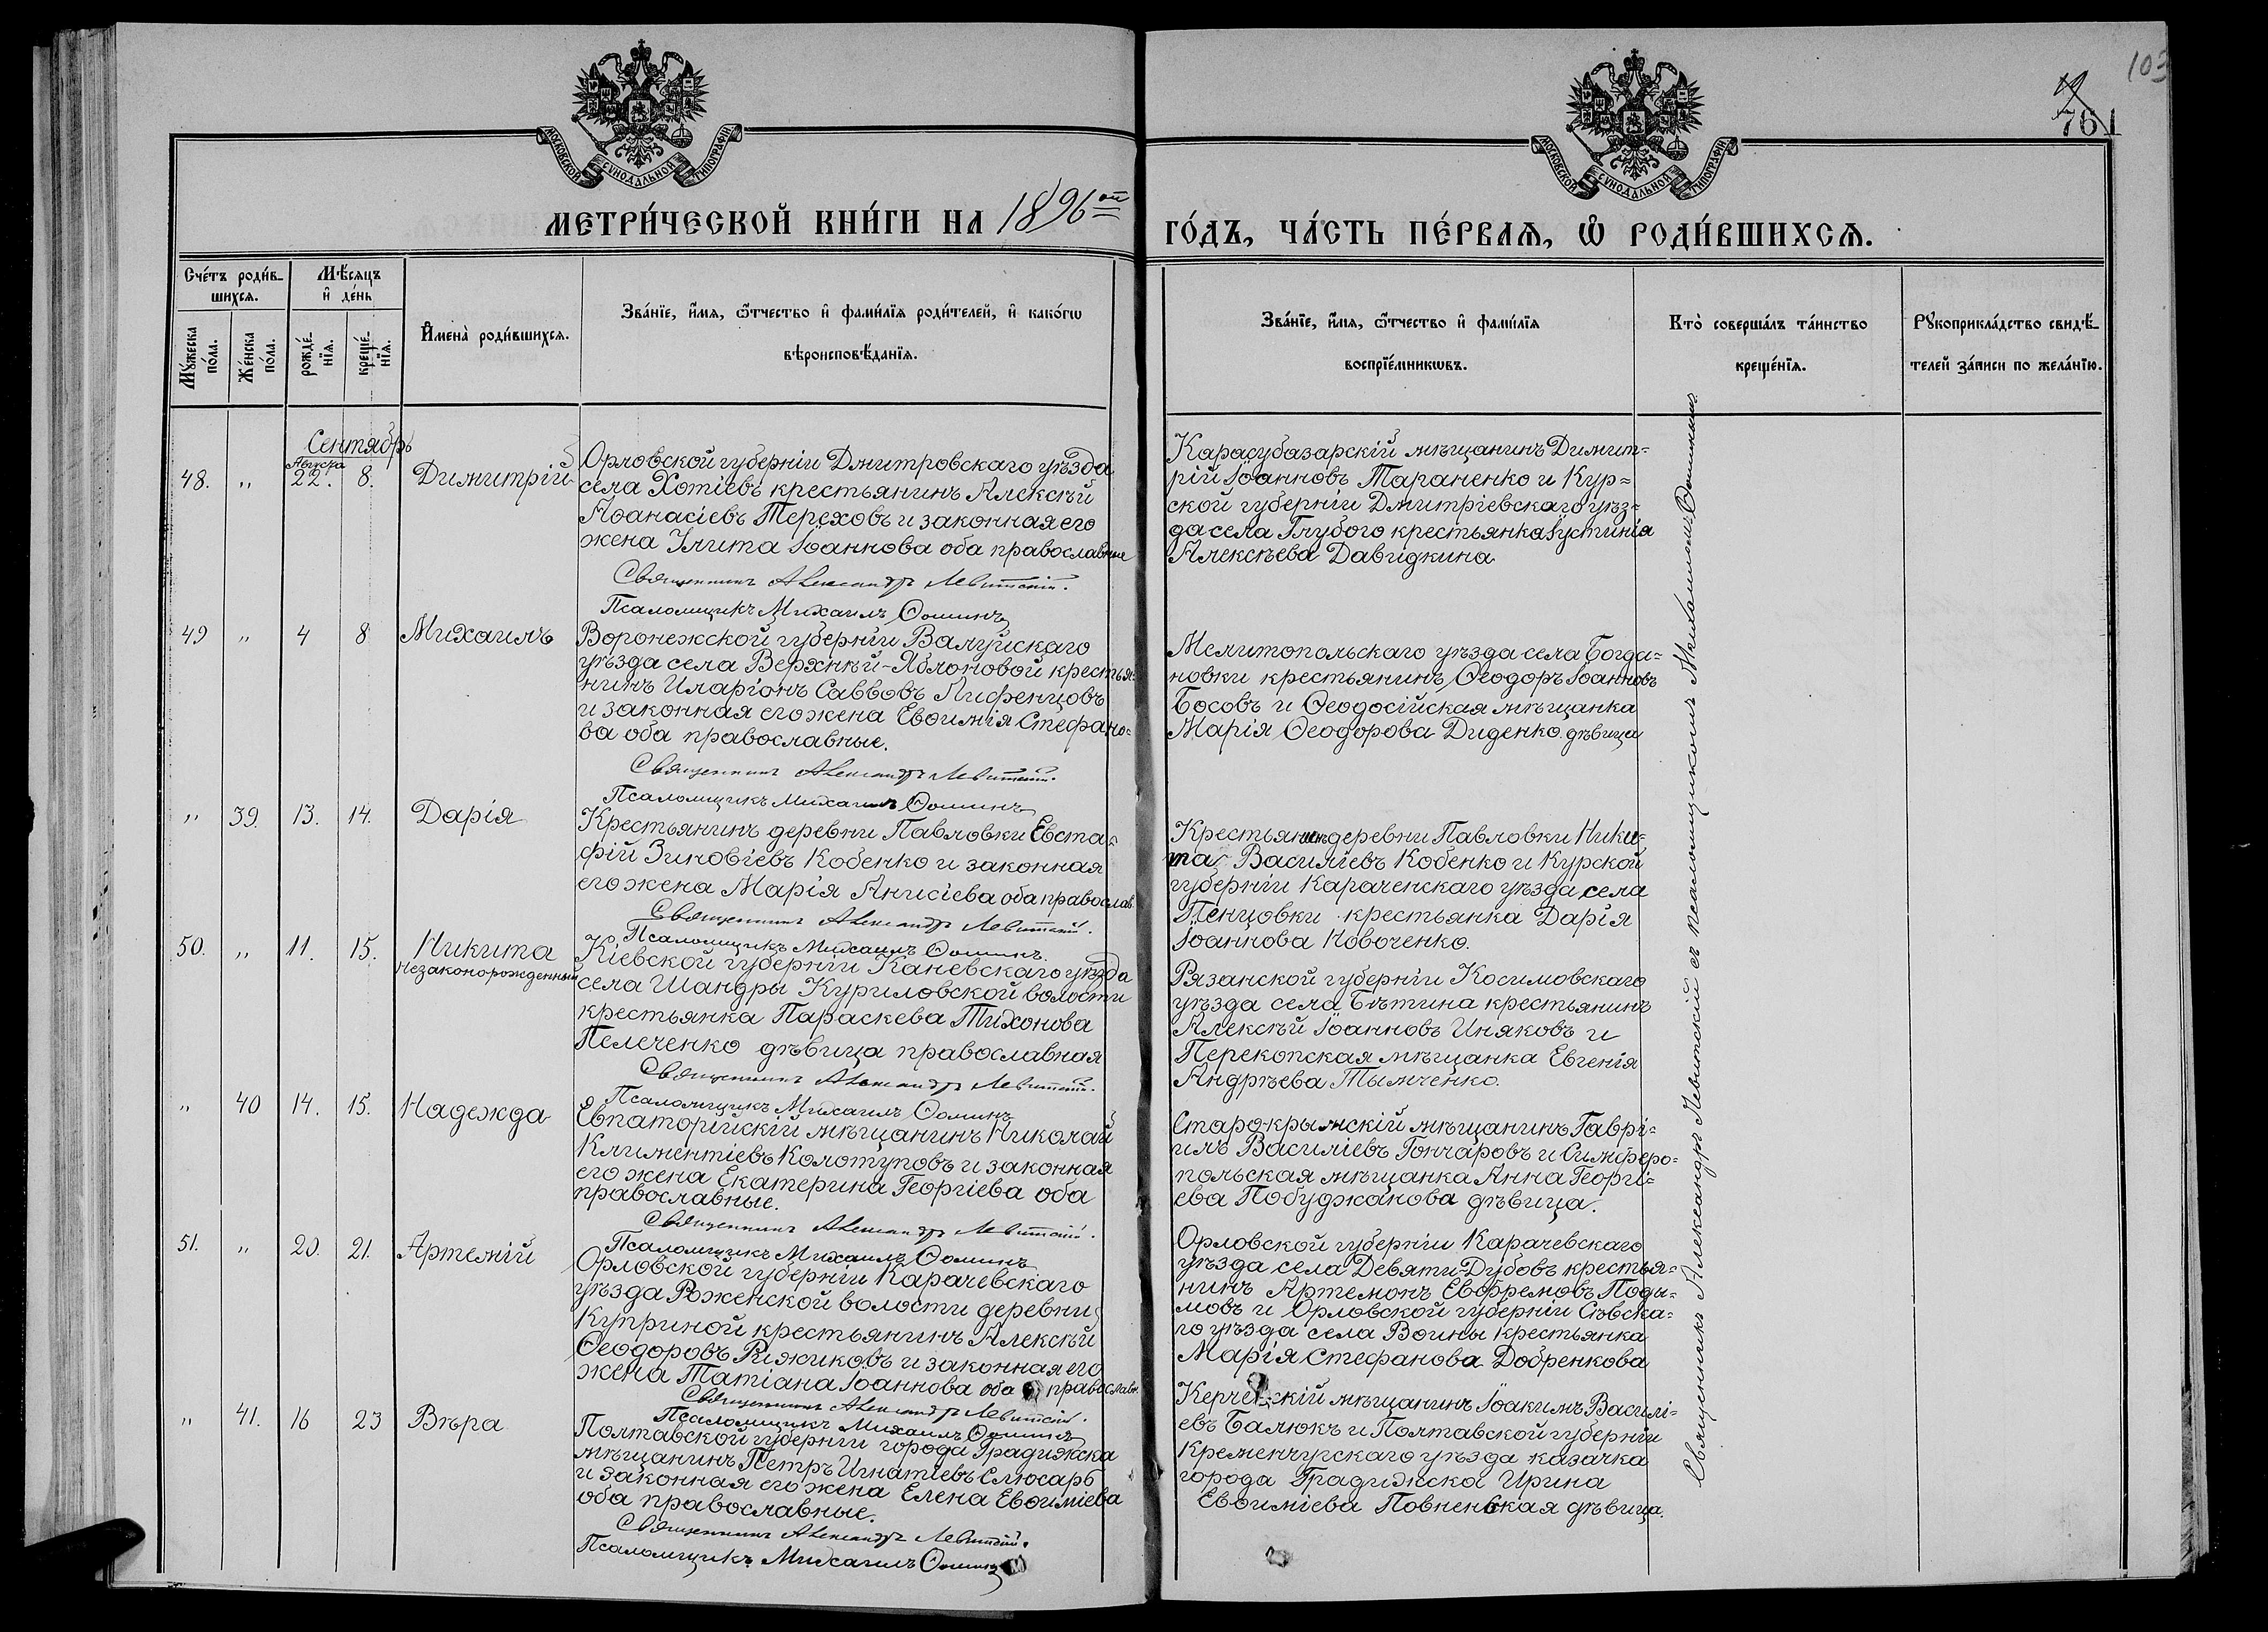 103
761
МОСКОВСКОЙ СѴНОДАЛЬНОЙ ТИПОГРАФІИ
МОСКОВСКОЙ СѴНОДАЛЬНОЙ ТИПОГРАФІИ
МЕТРИ́ЧЕСКОЙ КНИ́ГИ НА 1896ой
ГО́ДЪ, ЧА́СТЬ ПЕ́РВАѦ, Ѡ҆ РОДИ́ВШИХСѦ.
Сче́тъ роди́в-
шихсѧ.
Мѣ́сѧцъ
и҆ де́нь
Мꙋ́жеска
по́ла.
Же́нска
по́ла.
рожде́-
нїѧ.
креще́-
нїѧ.
И҆мена̀ роди́вшихсѧ.
Зва́нїе, и҆́мѧ, ѻ҆́тчество и҆ фами́лїѧ роди́телей, и҆ како́гѡ
вѣроисповѣ́данїѧ.
Зва́нїе, и҆́мѧ, ѻ҆́тчество и҆ фами́лїѧ
воспрїе́мникѡвъ.
Кто̀ соверша́лъ та́инство
креще́нїѧ.
Рꙋкоприкла́дство свидѣ́-
телей за́писи по жела́нїю.
Сентябрь
48. " Августа 22. 8. Димитрій
Орловской губерніи Дмитровскаго уѣзда
села Хотіевъ крестьянинъ Алексѣй
Аѳанасіевъ Тереховъ и законная его
жена Улита Іоаннова оба православные
Священникъ Александръ Левитскій.
Псаломщикъ Михаилъ Ѳоминъ
Карасубазарскій мѣщанинъ Димит=
рій Іоанновъ Тараненко и Кур=
ской губерніи Дмитріевскаго уѣз=
да села Глубого крестьянка Іустинія
Алексѣева Давидкина
49 " 4 8 Михаилъ
Воронежской губерніи Валуйскаго
уѣзда села Верхнѣй-Яблоновой крестья=
нинъ Иларіонъ Саввовъ Лифенцовъ
и законная его жена Евѳимія Стефано=
ва оба православные.
Священникъ Александръ Левитскій.
Псаломщикъ Михаилъ Ѳоминъ
Мелитопольскаго уѣзда села Богда=
новки крестьянинъ Ѳеодоръ Іоанновъ
Босовъ и Ѳеодосійская мѣщанка
Марія Ѳеодорова Диденко дѣвица
" 39. 13. 14. Дарія
Крестьянинъ деревни Павловки Евста=
фій Зиновіевъ Кобенко и законная
его жена Марія Анисіева оба православ.
Священникъ Александръ Левитскій.
Псаломщикъ Михаилъ Ѳоминъ.
Крестьянинъ деревни Павловки Ники=
та Василіевъ Кобенко и Курской
губерніи Караченскаго уѣзда села
Пенцовки крестьянка Дарія
Іоаннова Новоченко.
50. " 11. 15. Никита
Незаконорожденный
Кіевской губерніи Каневскаго уѣзда
села Шандры Куриловской волости
крестьянка Параскева Тихонова
Пелеченко дѣвица православная
Священникъ Александръ Левитскій.
Псаломщикъ Михаилъ Ѳоминъ
Рязанской губерніи Косимовскаго
уѣзда села Бѣтина крестьянинъ
Алексѣй Іоанновъ Иняковъ и
Перекопская мѣщанка Евгенія
Андрѣева Тымченко.
" 40 14. 15. Надежда
Евпаторійскій мѣщанинъ Николай
Климентіевъ Колотуповъ и законная
его жена Екатерина Георгіева оба
православные.
Священникъ Александръ Левитскій.
Псаломщикъ Михаилъ Ѳоминъ
Старо-крымскій мѣщанинъ Гаврі=
илъ Василіевъ Гончаровъ и Симферо=
польская мѣщанка Анна Георгі=
ева Побуджанова дѣвица.
51. " 20. 21. Артемій
Орловской губерніи Карачевскаго
уѣзда Роженской волости деревни
Куприной крестьянинъ Алексѣй
Ѳеодоровъ Рыжиковъ и законная его
жена Татіана Іоаннова оба православн.
Священникъ Александръ Левитскій.
Псаломщикъ Михаилъ Ѳоминъ
Орловской губерніи Карачевскаго
уѣзда села Девяти-Дубовъ крестья=
нинъ Артемонъ Евфремовъ Поды=
мовъ и Орловской губерніи Сѣвска=
го уѣзда села Воины крестьянка
Марія Стефанова Добренкова
" 41. 16 23 Вѣра
Полтавской губерніи города Градижска
мѣщанинъ Петръ Игнатіевъ Слюсарь
и законная его жена Елена Евѳиміева
оба православные.
Священникъ Александръ Левитскій.
Псаломщикъ Михаилъ Ѳоминъ
Керченскій мѣщанинъ Іоакимъ Василі=
евъ Балюкъ и Полтавской губерніи
Кременчугскаго уѣзда казачка
города Градижска Ирина
Евѳиміева Повненская дѣвица.
Священникъ Александръ Левитскій съ псаломщикомъ Михаиломъ Ѳоминымъ